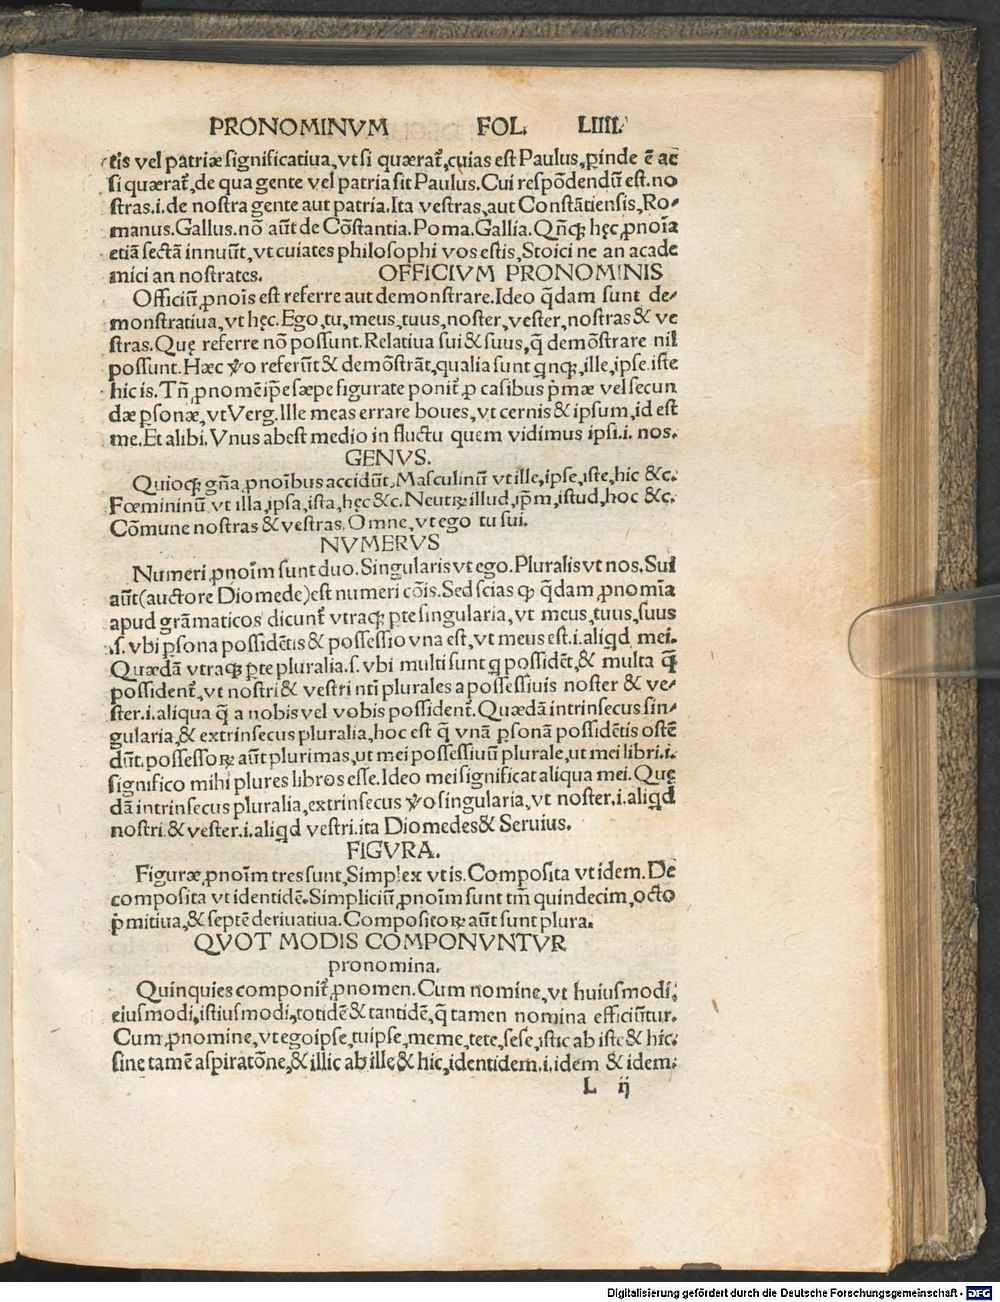 PRONOMINVM FOL. LIIII.
tis vel patriæ significatiua, vt si quærat᷑, cuias est Paulus, ꝓinde ē ac
si quærat᷑, de qua gente vel patria sit Paulus. Cui respōdendū est. no
stras .i. de nostra gente aut patria. Ita vestras, aut Constātiensis, Ro⸗
manus. Gallus. nō aūt de Cōstantia. Poma. Gallia. Qñꝙ hęc ꝓnoīa
etiā sectā innuūt, vt cuiates philosophi vos estis, Stoici ne an acade
mici an nostrates. OFFICIVM PRONOMINIS
Officiū ꝓnoīs est referre aut demonstrare. Ideo q̄dam sunt de⸗
monstratiua, vt hęc. Ego, tu, meus, tuus, noster, vester, nostras & ve
stras. Quę referre nō possunt. Relatiua sui & suus, q̄ demōstrare nil
possunt. Hæc ꝟo referūt & demōstrāt, qualia sunt qnꝙ, ille, ipse. iste
hic is. Tñ ꝓnomē ip̄e sæpe figurate ponit᷑ ꝓ casibus p̄mæ vel secun
dæ ꝑsonæ, vt Verg. Ille meas errare boues, vt cernis & ipsum, id est
me. Et alibi. Vnus abest medio in fluctu quem vidimus ipsi .i. nos.
GENVS.
Quioꝙ gña ꝓnoībus accidūt. Masculinū vt ille, ipse, iste, hic &c.
Fœmininū vt illa, ipsa, ista, hęc &c. Neutꝝ illud, ip̄m, istud, hoc &c.
Cōmune nostras & vestras. Omne, vt ego tu sui.
NVMERVS
Numeri ꝓnoīm sunt duo. Singularis vt ego. Pluralis vt nos. Sui
aūt (auctore Diomede) est numeri cōis. Sed scias ꝙ q̄dam ꝓnomīa
apud grāmaticos dicunt᷑ vtraꝙ ꝑte singularia, vt meus, tuus, suus
.s. vbi ꝑsona possidētis & possessio vna est, vt meus est .i. aliqd mei.
Quædā vtraꝙ ꝑte pluralia .s. vbi multi sunt q possidēt, & multa q̄
possident᷑, vt nostri & vestri ntī plurales a possessiuis noster & ve⸗
ster .i. aliqua q̄ a nobis vel vobis possident᷑. Quædā intrinsecus sin⸗
gularia, & extrinsecus pluralia, hoc est q̄ vnā ꝑsonā possidētis ostē
dūt. possessoꝝ aūt plurimas, ut mei possessiuū plurale, ut mei libri .i.
significo mihi plures libros esse. Ideo mei significat aliqua mei. Quę
dā intrinsecus pluralia, extrinsecus ꝟo singularia, vt noster .i. aliqd
nostri & vester .i. aliqd vestri. ita Diomedes & Seruius.
FIGVRA.
Figuræ ꝓnoīm tres sunt, Simplex vt is. Composita vt idem. De
composita vt identidē. Simpliciū ꝓnoīm sunt tm̄ quindecim, octo
p̄mitiua, & septē deriuatiua. Compositoꝝ aūt sunt plura.
QVOT MODIS COMPONVNTVR
pronomina.
Quinquies componit᷑ ꝓnomen. Cum nomine, vt huiusmodi,
eiusmodi, istiusmodi, totidē & tantidē, q̄ tamen nomina efficiūtur.
Cum ꝓnomine, vt egoipse, tuipse, meme, tete, sese, istic ab iste & hic
sine tamē aspiratōne, & illic ab ille & hic, identidem .i. idem & idem.
L ij
Digitalisierung gefördert durch die Deutsche Forschungsgemeinschaft - DFG